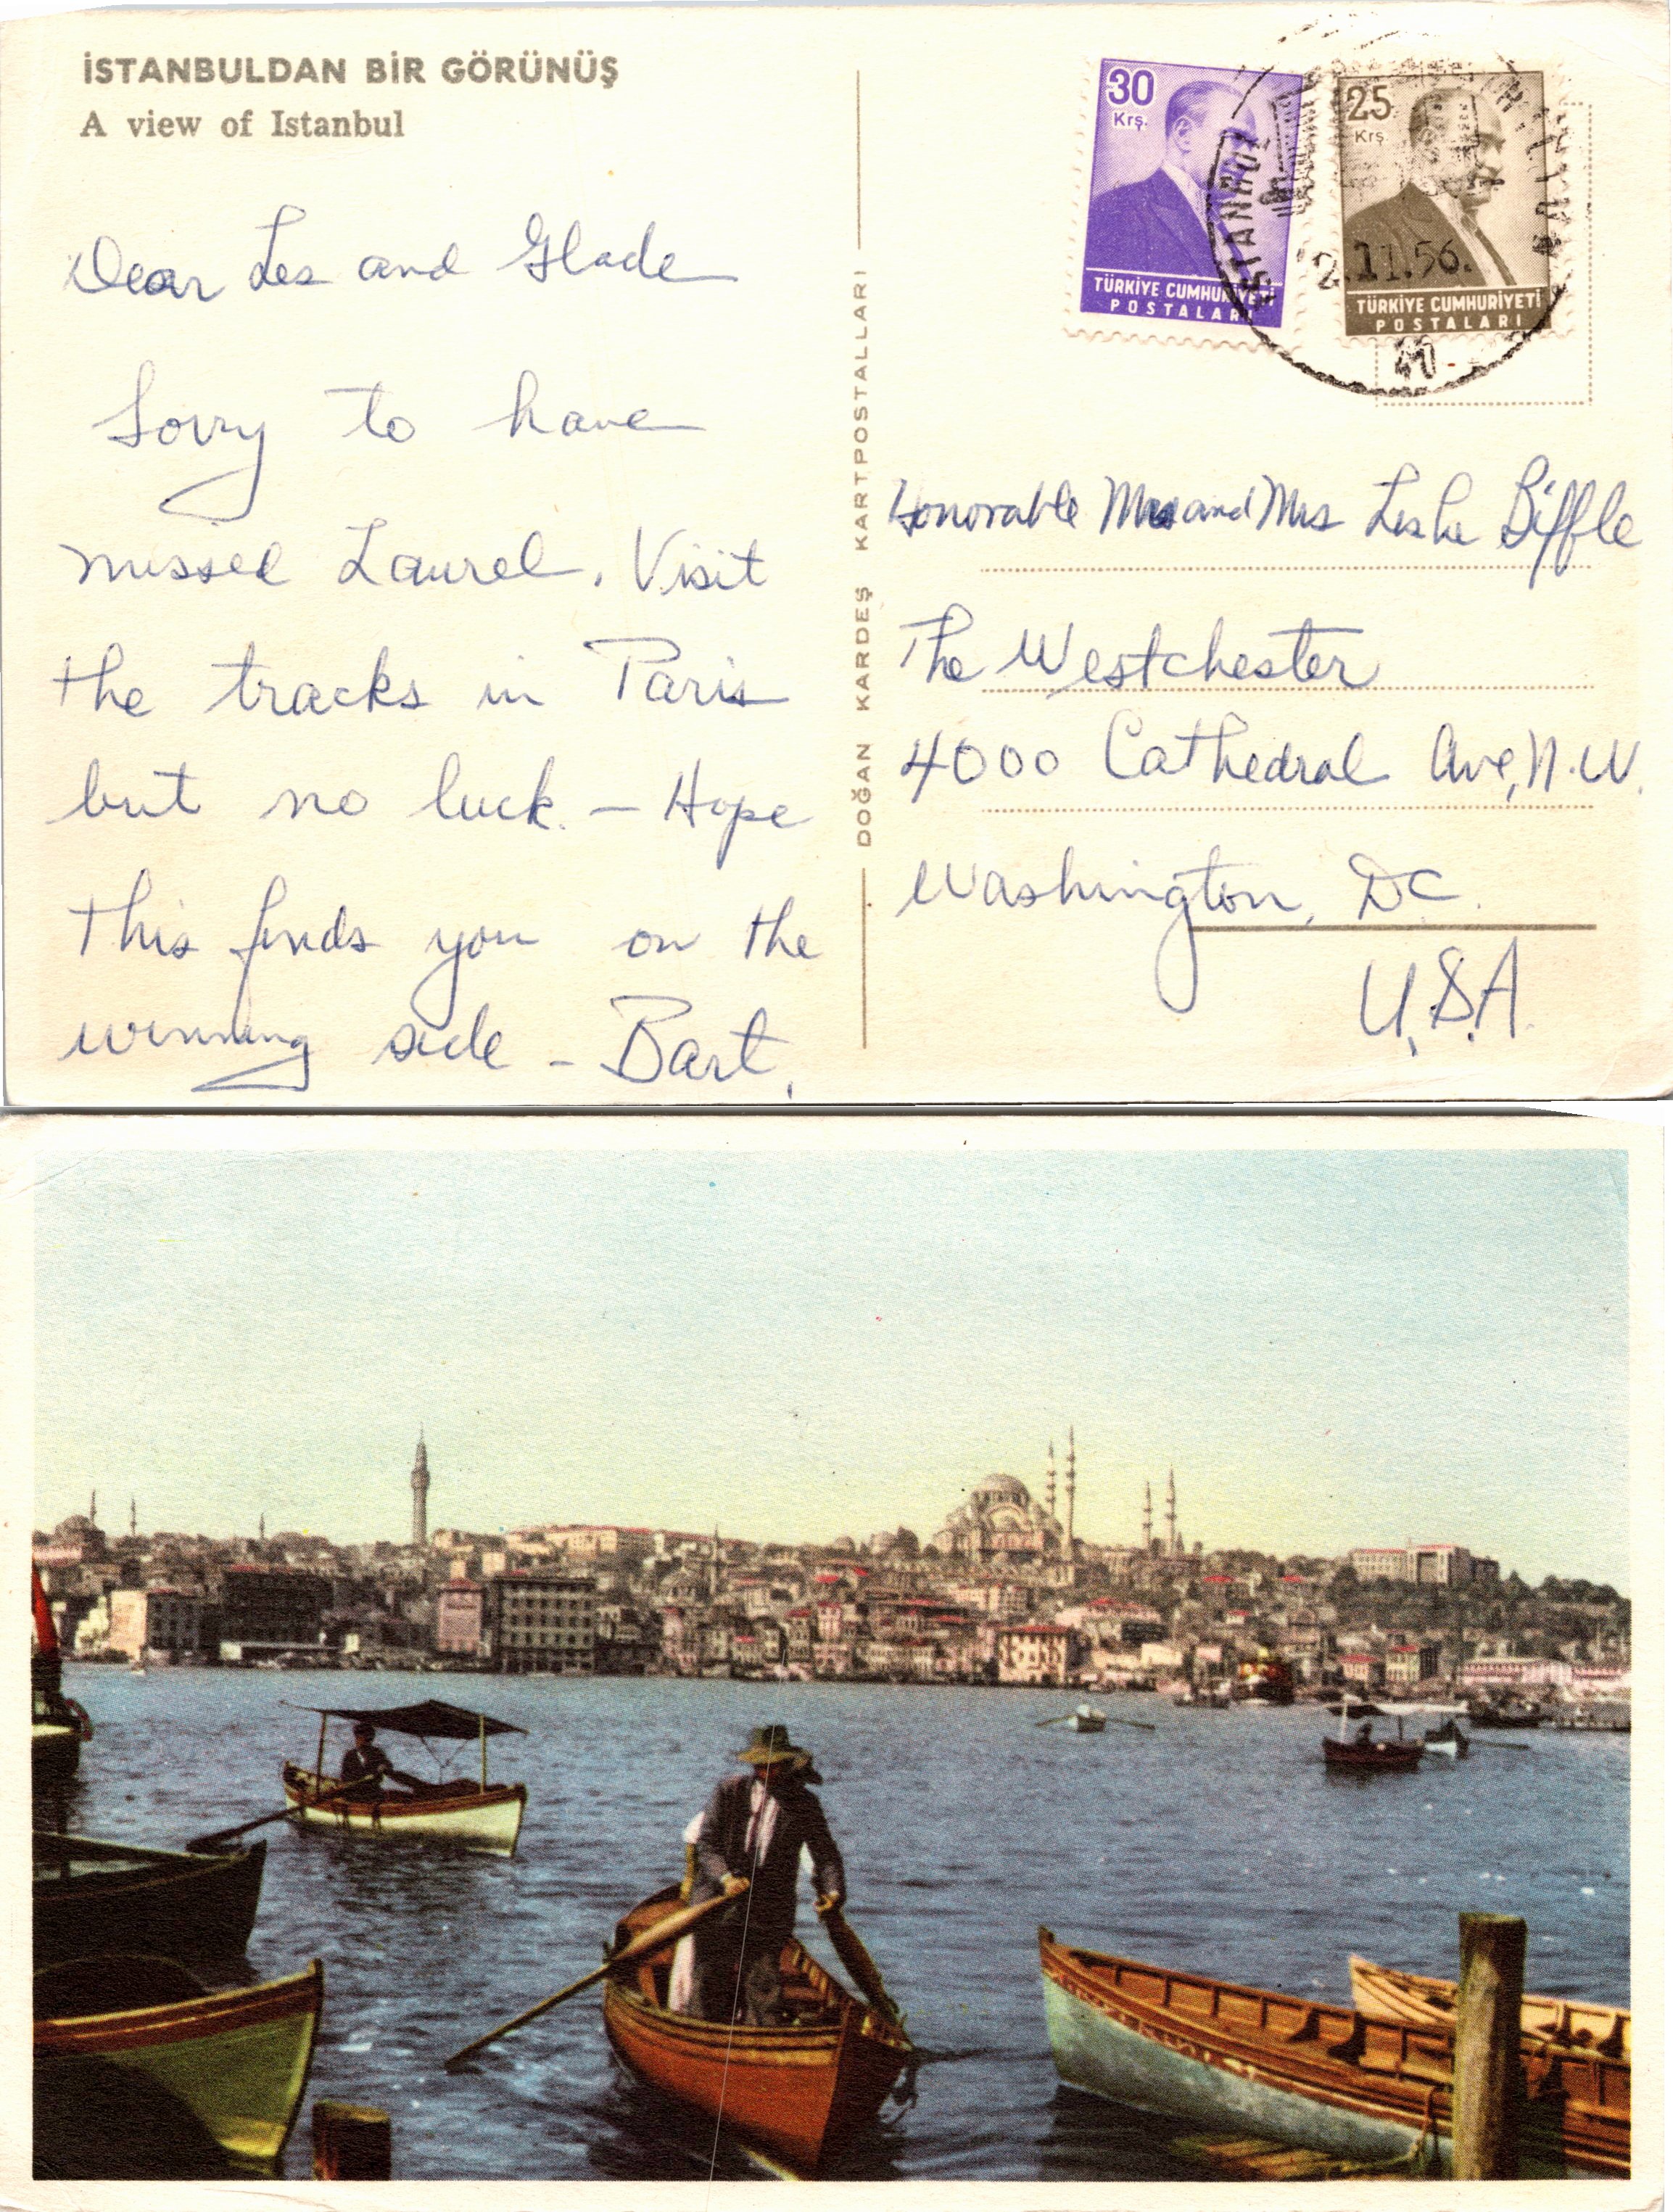 İSTANBULDAN BİR GÖRÜNÜŞ
A view of Istanbul
Dear Les and Glade
Sorry to have
missed Laurel. Visit
the tracks in Paris
but no luck. – Hope
This finds you on the
winning side – Bart.
DOĞAN KARDEŞ KARTPOSTALLARI
30
Krş.
TÜRKİYE CUMHURİYETİ
POSTALARI
25
Krş.
TÜRKİYE CUMHURİYETİ
POSTALARI
İSTANBUL
2.11.56.
Honorable Mr and Mrs Leslie Biffle
The Westchester
4000 Cathedral Ave, N.W.
Washington, DC.
U.S.A.